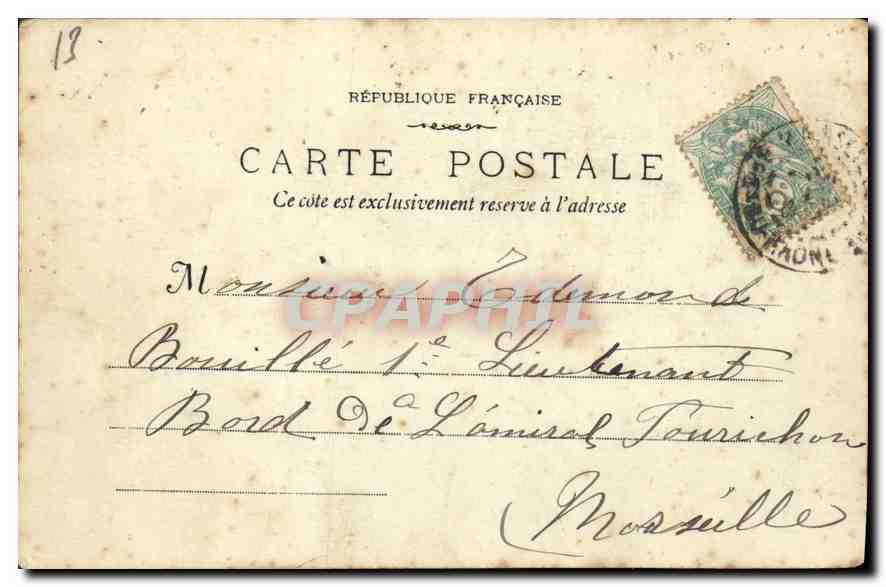 13
RÉPUBLIQUE FRANÇAISE
CARTE POSTALE
Ce côte est exclusivement reserve à l'adresse
Monsieur Edmond
Bouillé 1e Lieutenant
Bord De L'amiral Fourichon
Marseille
CPAPHIL
RHONE